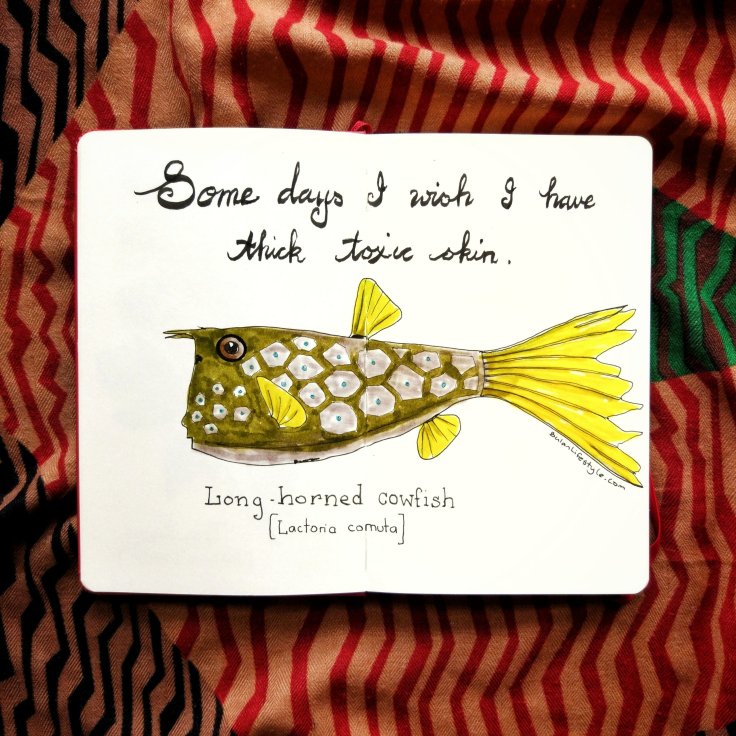 Some days I wish I have
thick toxic skin.
bulanLifestyle.com
Long-horned cowfish
[Lactoria cornuta]